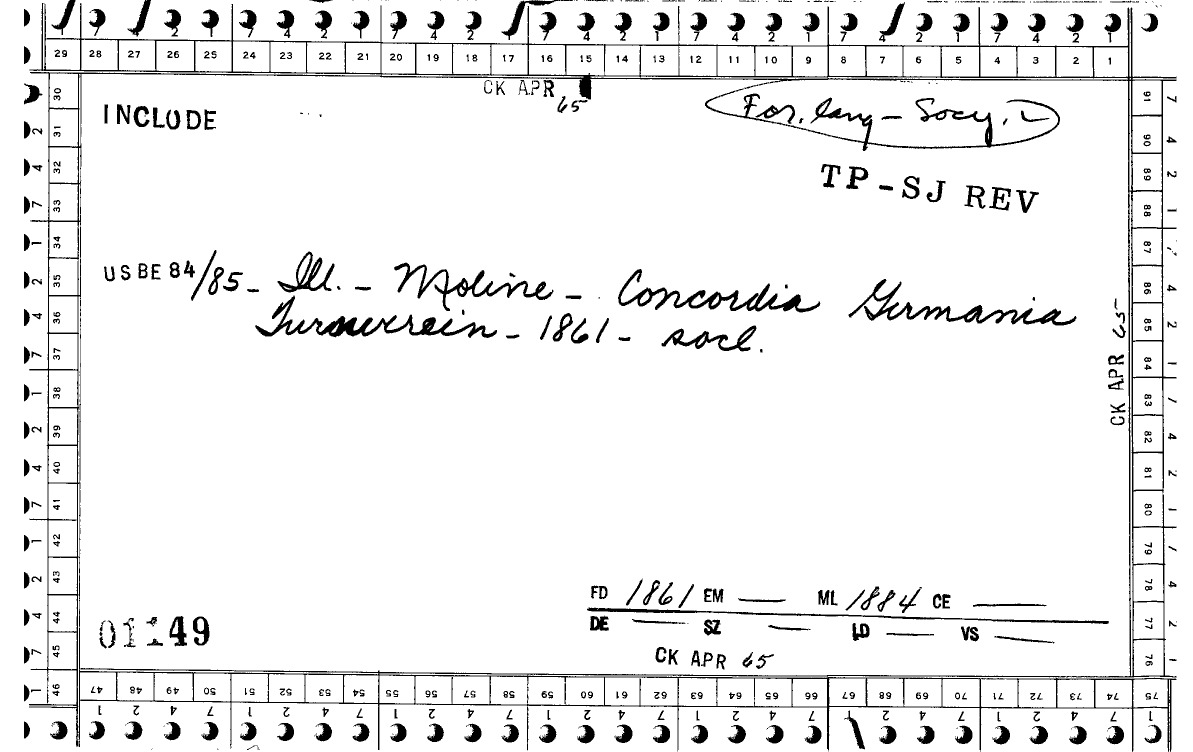 1 7 4 2 1 7 4 2 1 7 4 2 1 7 4 2 1 7 4 2 1 7 4 2 1 7 4 2 1
29 28 27 26 25 24 23 22 21 20 19 18 17 16 15 14 13 12 11 10 9 8 7 6 5 4 3 2 1
CK APR 65
INCLUDE
For. lang - Socy.
TP-SJ REV
USBE 84/85 - Ill. - Moline - Concordia Germania
Turnverein - 1861 - socl.
CK APR 65
FD 1861 EM — ML 1884 CE —
DE — SZ — LD — VS —
01149
CK APR 65
30 31 32 33 34 35 36 37 38 39 40 41 42 43 44 45 46
91 90 89 88 87 86 85 84 83 82 81 80 79 78 77 76 75
47 48 49 50 51 52 53 54 55 56 57 58 59 60 61 62 63 64 65 66 67 68 69 70 71 72 73 74
1 2 4 7 1 2 4 7 1 2 4 7 1 2 4 7 1 2 4 7 1 2 4 7 1 2 4 7 1